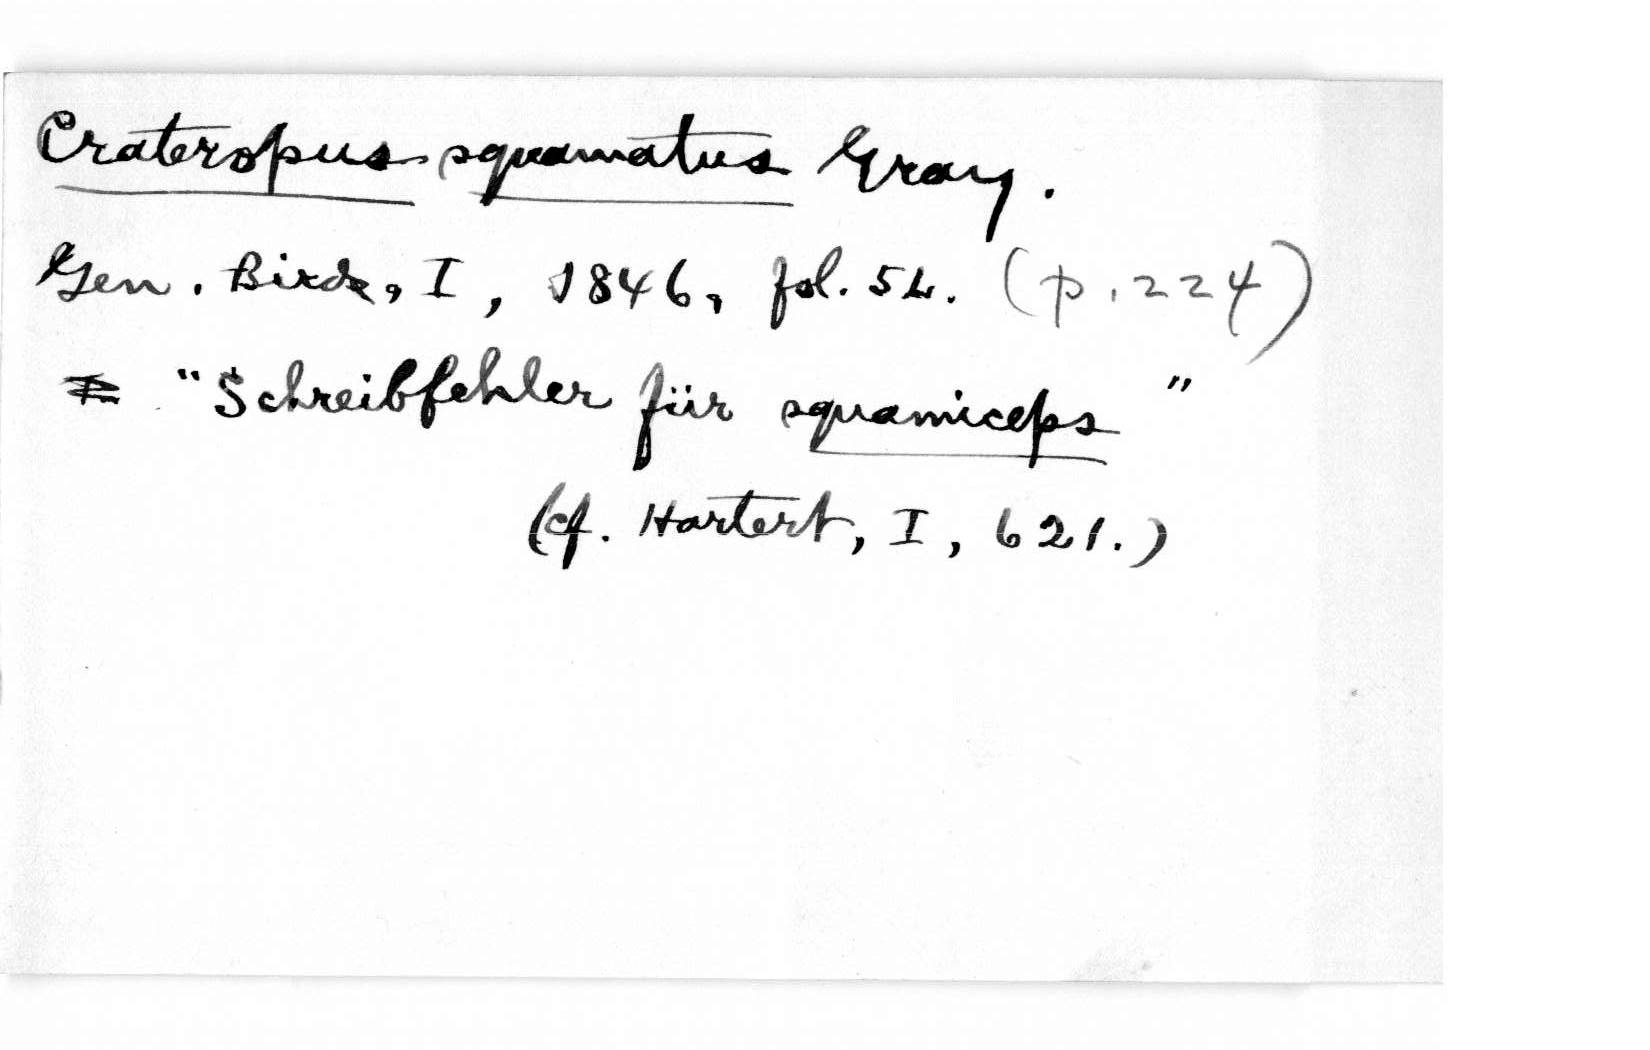 Crateropus squamatus Gray.
Gen. Birds, I, 1846, fol. 52. (p. 224)
= "Schreibfehler für squamiceps"
(cf. Hartert, I, 621.)